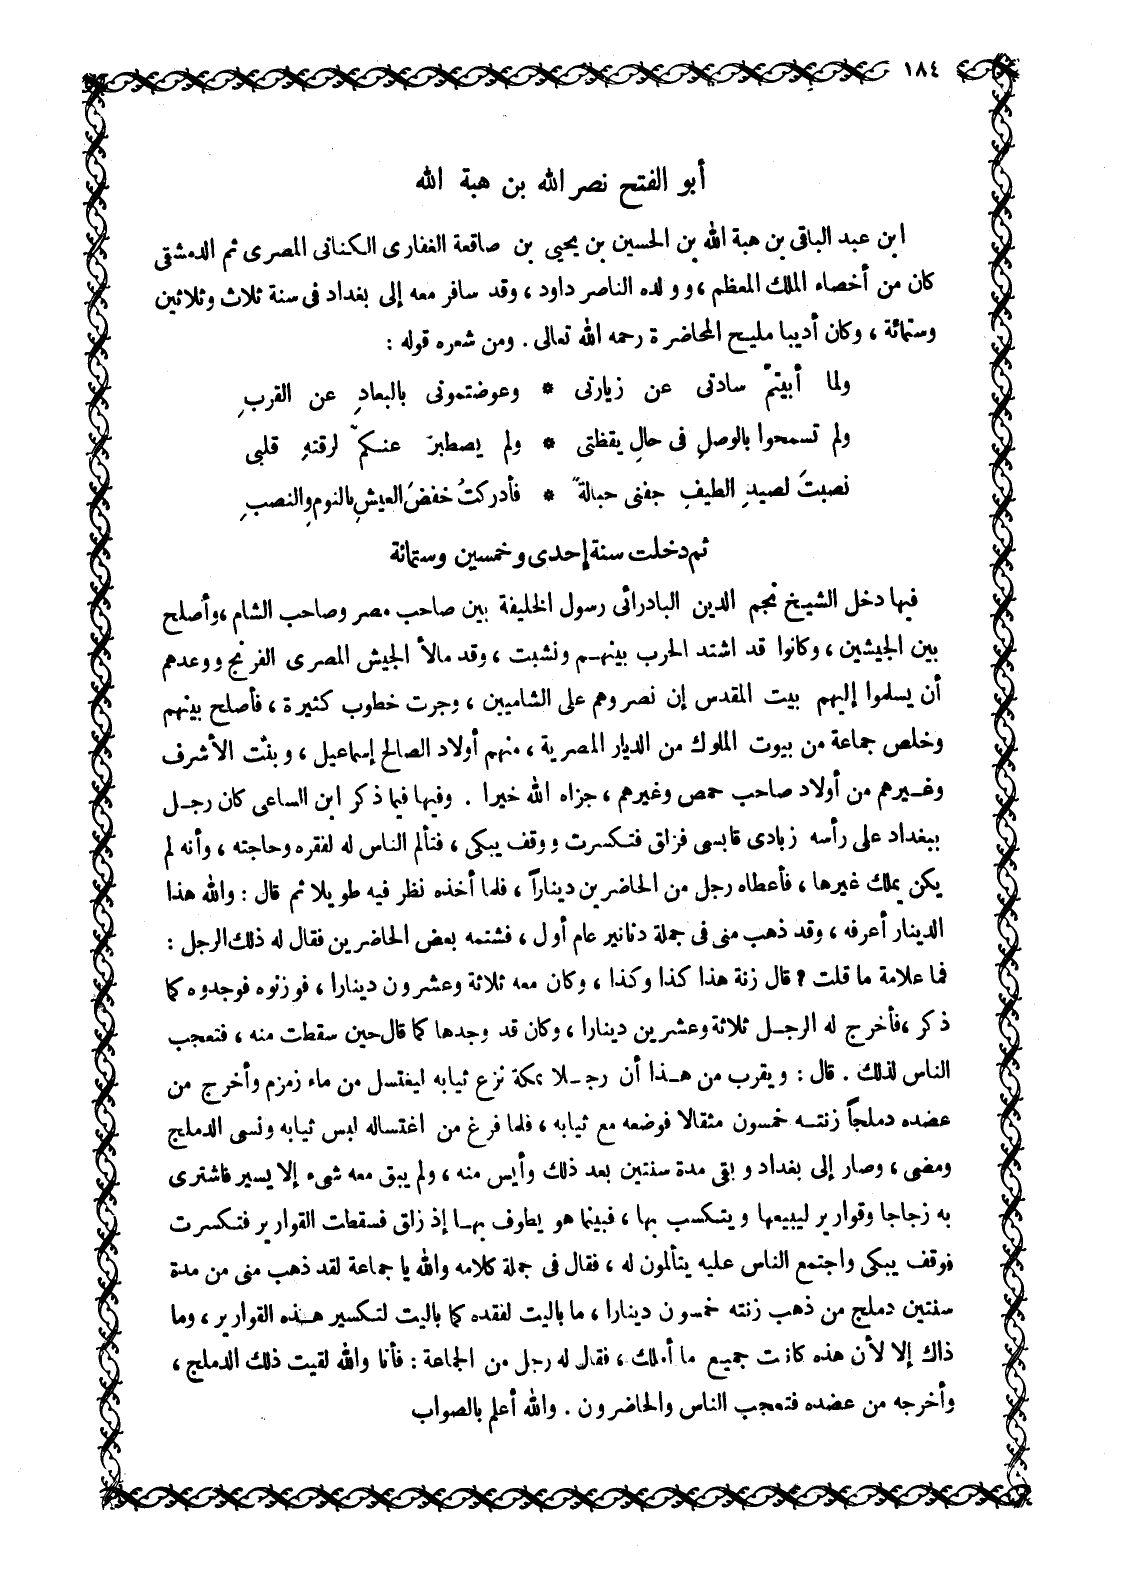 ١٨٤
أبو الفتح نصر الله بن هبة الله
ابن عبد الباقى بن هبة الله بن الحسين بن يحيى بن صاقعة الغفارى الكنانى المصرى ثم الدمشقى
كان من أخصاء الملك المعظم ، وولده الناصر داود ، وقد سافر معه إلى بغداد فى سنة ثلاث وثلاثين
وستمائة ، وكان أديبا مليح المحاضرة رحمه الله تعالى . ومن شعره قوله :
ولما أبيتمْ سادتى عن زيارتى * وعوضتمونى بالبعادِ عن القربِ
ولم تسمحوا بالوصلِ فى حالِ يقظتى * ولم يصطبرْ عنكمْ لرقتهِ قلبى
نصبتَ لصيدِ الطيفِ جفنى حبالةً * فأدركتُ خفضَ العيشِ بالنومِ والنصبِ
ثم دخلت سنة إحدى وخمسين وستمائة
فيها دخل الشيخ نجم الدين البادرائى رسول الخليفة بين صاحب مصر وصاحب الشام ، وأصلح
بين الجيشين ، وكانوا قد اشتد الحرب بينهم ونشبت ، وقد مالأ الجيش المصرى الفرنج ووعدهم
أن يسلموا إليهم بيت المقدس إن نصروهم على الشاميين ، وجرت خطوب كثيرة ، فأصلح بينهم
وخلص جماعة من بيوت الملوك من الديار المصرية ، منهم أولاد الصالح إسماعيل ، وبنت الأشرف
وغيرهم من أولاد صاحب حمص وغيرهم ، جزاه الله خيرا . وفيها فيما ذكر ابن الساعى كان رجل
ببغداد على رأسه زبادى قابسى فزلق فتكسرت ووقف يبكى ، فتألم الناس له لفقره وحاجته ، وأنه لم
يكن يملك غيرها ، فأعطاه رجل من الحاضرين ديناراً ، فلما أخذه نظر فيه طويلا ثم قال : والله هذا
الدينار أعرفه ، وقد ذهب منى فى جملة دنانير عام أول ، فشتمه بعض الحاضرين فقال له ذلك الرجل :
فما علامة ما قلت ؟ قال زنة هذا كذا وكذا ، وكان معه ثلاثة وعشرون دينارا ، فوزنوه فوجدوه كما
ذكر ، فأخرج له الرجل ثلاثة وعشرين دينارا ، وكان قد وجدها كما قال حين سقطت منه ، فتعجب
الناس لذلك . قال : ويقرب من هذا أن رجلا بمكة نزع ثيابه ليغتسل من ماء زمزم وأخرج من
عضده دملجاً زنته خمسون مثقالا فوضعه مع ثيابه ، فلما فرغ من اغتساله لبس ثيابه ونسى الدملج
ومضى ، وصار إلى بغداد وبقى مدة سنتين بعد ذلك وأيس منه ، ولم يبق معه شىء إلا يسير فاشترى
به زجاجا وقوارير ليبيعها ويتكسب بها ، فبينما هو يطوف بها إذ زلق فسقطت القوارير فتكسرت
فوقف يبكى واجتمع الناس عليه يتألمون له ، فقال فى جملة كلامه والله يا جماعة لقد ذهب منى من مدة
سنتين دملج من ذهب زنته خمسون دينارا ، ما باليت لفقده كما باليت لتكسير هذه القوارير ، وما
ذاك إلا لأن هذه كانت جميع ما أملك ، فقال له رجل من الجماعة : فأنا والله لقيت ذلك الدملج ،
وأخرجه من عضده فتعجب الناس والحاضرون . والله أعلم بالصواب